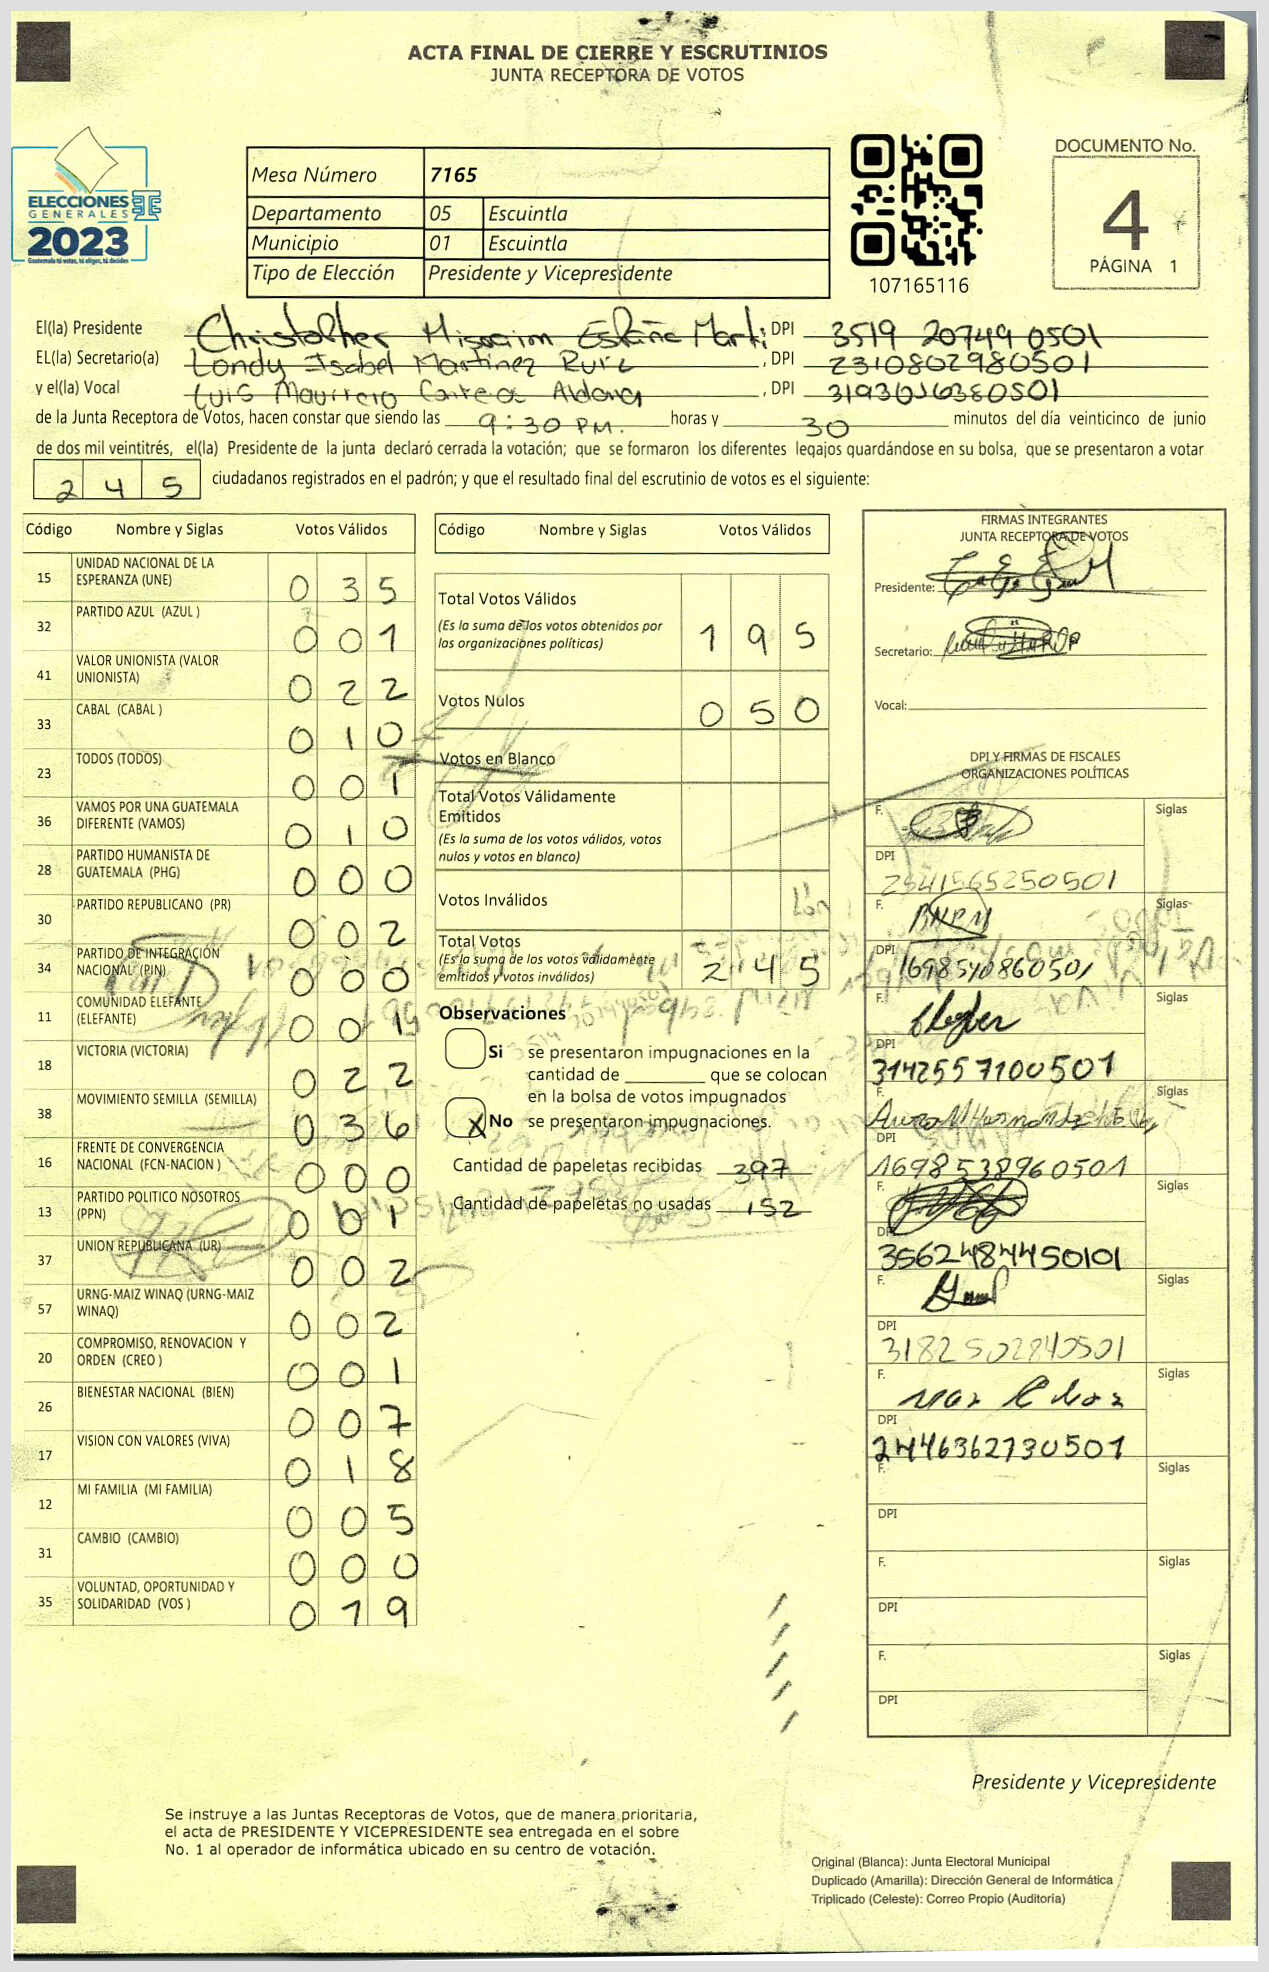 ACTA FINAL DE CIERRE Y ESCRUTINIOS
JUNTA RECEPTORA DE VOTOS
ELECCIONES
GENERALES
2023
Guatemala tú votas, tú eliges, tú decides
Mesa Número 7165
Departamento 05 Escuintla
Municipio 01 Escuintla
Tipo de Elección Presidente y Vicepresidente
107165116
DOCUMENTO No.
4
PÁGINA 1
El(la) Presidente Christopher España Marti DPI 3519 20749 0501
EL(la) Secretario(a) Londy Isabel Martinez Ruiz , DPI 2310802980501
y el(la) Vocal Luis Mauricio Aldana , DPI 3193036380501
de la Junta Receptora de Votos, hacen constar que siendo las 9:30 PM. horas y 30 minutos del día veinticinco de junio
de dos mil veintitrés, el(la) Presidente de la junta declaró cerrada la votación; que se formaron los diferentes legajos guardándose en su bolsa, que se presentaron a votar
2 4 5 ciudadanos registrados en el padrón; y que el resultado final del escrutinio de votos es el siguiente:
Código Nombre y Siglas Votos Válidos
15 UNIDAD NACIONAL DE LA ESPERANZA (UNE) 0 3 5
32 PARTIDO AZUL (AZUL ) 0 0 1
41 VALOR UNIONISTA (VALOR UNIONISTA) 0 2 2
33 CABAL (CABAL ) 0 1 0
23 TODOS (TODOS) 0 0 1
36 VAMOS POR UNA GUATEMALA DIFERENTE (VAMOS) 0 1 0
28 PARTIDO HUMANISTA DE GUATEMALA (PHG) 0 0 0
30 PARTIDO REPUBLICANO (PR) 0 0 2
34 PARTIDO DE INTEGRACIÓN NACIONAL (PIN) 0 0 0
11 COMUNIDAD ELEFANTE (ELEFANTE) 0 0 1
18 VICTORIA (VICTORIA) 0 2 2
38 MOVIMIENTO SEMILLA (SEMILLA) 0 3 6
16 FRENTE DE CONVERGENCIA NACIONAL (FCN-NACION ) 0 0 0
13 PARTIDO POLITICO NOSOTROS (PPN) 0 0 1
37 UNION REPUBLICANA (UR) 0 0 2
57 URNG-MAIZ WINAQ (URNG-MAIZ WINAQ) 0 0 2
20 COMPROMISO, RENOVACION Y ORDEN (CREO ) 0 0 1
26 BIENESTAR NACIONAL (BIEN) 0 0 7
17 VISION CON VALORES (VIVA) 0 1 8
12 MI FAMILIA (MI FAMILIA) 0 0 5
31 CAMBIO (CAMBIO) 0 0 0
35 VOLUNTAD, OPORTUNIDAD Y SOLIDARIDAD (VOS ) 0 1 9
Código Nombre y Siglas Votos Válidos
Total Votos Válidos
(Es la suma de los votos obtenidos por
las organizaciones políticas) 1 9 5
Votos Nulos 0 5 0
Votos en Blanco
Total Votos Válidamente
Emitidos
(Es la suma de los votos válidos, votos
nulos y votos en blanco)
Votos Inválidos
Total Votos
(Es la suma de los votos válidamente
emitidos y votos inválidos) 2 4 5
Observaciones
Si se presentaron impugnaciones en la
cantidad de ________ que se colocan
en la bolsa de votos impugnados
X No se presentaron impugnaciones.
Cantidad de papeletas recibidas 397
Cantidad de papeletas no usadas 152
FIRMAS INTEGRANTES
JUNTA RECEPTORA DE VOTOS
Presidente:
Secretario:
Vocal:
DPI Y FIRMAS DE FISCALES
ORGANIZACIONES POLÍTICAS
F. Siglas
DPI 2541565250501
F. Siglas
DPI 1698540860501
F. Siglas
DPI 3142557100501
F. Siglas
DPI 1698538960501
F. Siglas
DPI 3562484450101
F. Siglas
DPI 3182502840501
F. Siglas
DPI 2446362730501
F. Siglas
DPI
F. Siglas
DPI
F. Siglas
DPI
Presidente y Vicepresidente
Se instruye a las Juntas Receptoras de Votos, que de manera prioritaria,
el acta de PRESIDENTE Y VICEPRESIDENTE sea entregada en el sobre
No. 1 al operador de informática ubicado en su centro de votación.
Original (Blanca): Junta Electoral Municipal
Duplicado (Amarilla): Dirección General de Informática
Triplicado (Celeste): Correo Propio (Auditoría)